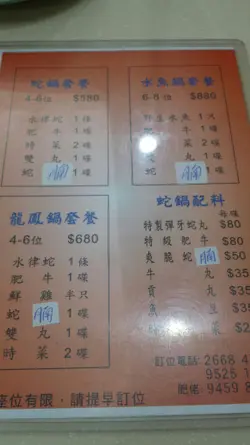 蛇鍋套餐
4-6位 $580
水律蛇 1條
肥牛 1碟
時菜 2碟
雙丸 1碟
蛇腩 1碟
水魚鍋套餐
6-8位 $880
水魚 1隻
肥牛 1碟
時菜 2碟
雙丸 1碟
蛇腩 1碟
龍鳳鍋套餐
4-6位 $680
水律蛇 1條
肥牛 1碟
鮮雞 半只
蛇腩 1碟
雙丸 1碟
時菜 2碟
蛇鍋配料
特製彈牙蛇丸 $80
特級肥牛 $80
爽脆蛇腩 $50
牛丸 $35
貢丸 $35
魚
訂位電話: 2668 4
9528 1
肥佬: 9459 8
座位有限,請提早訂位